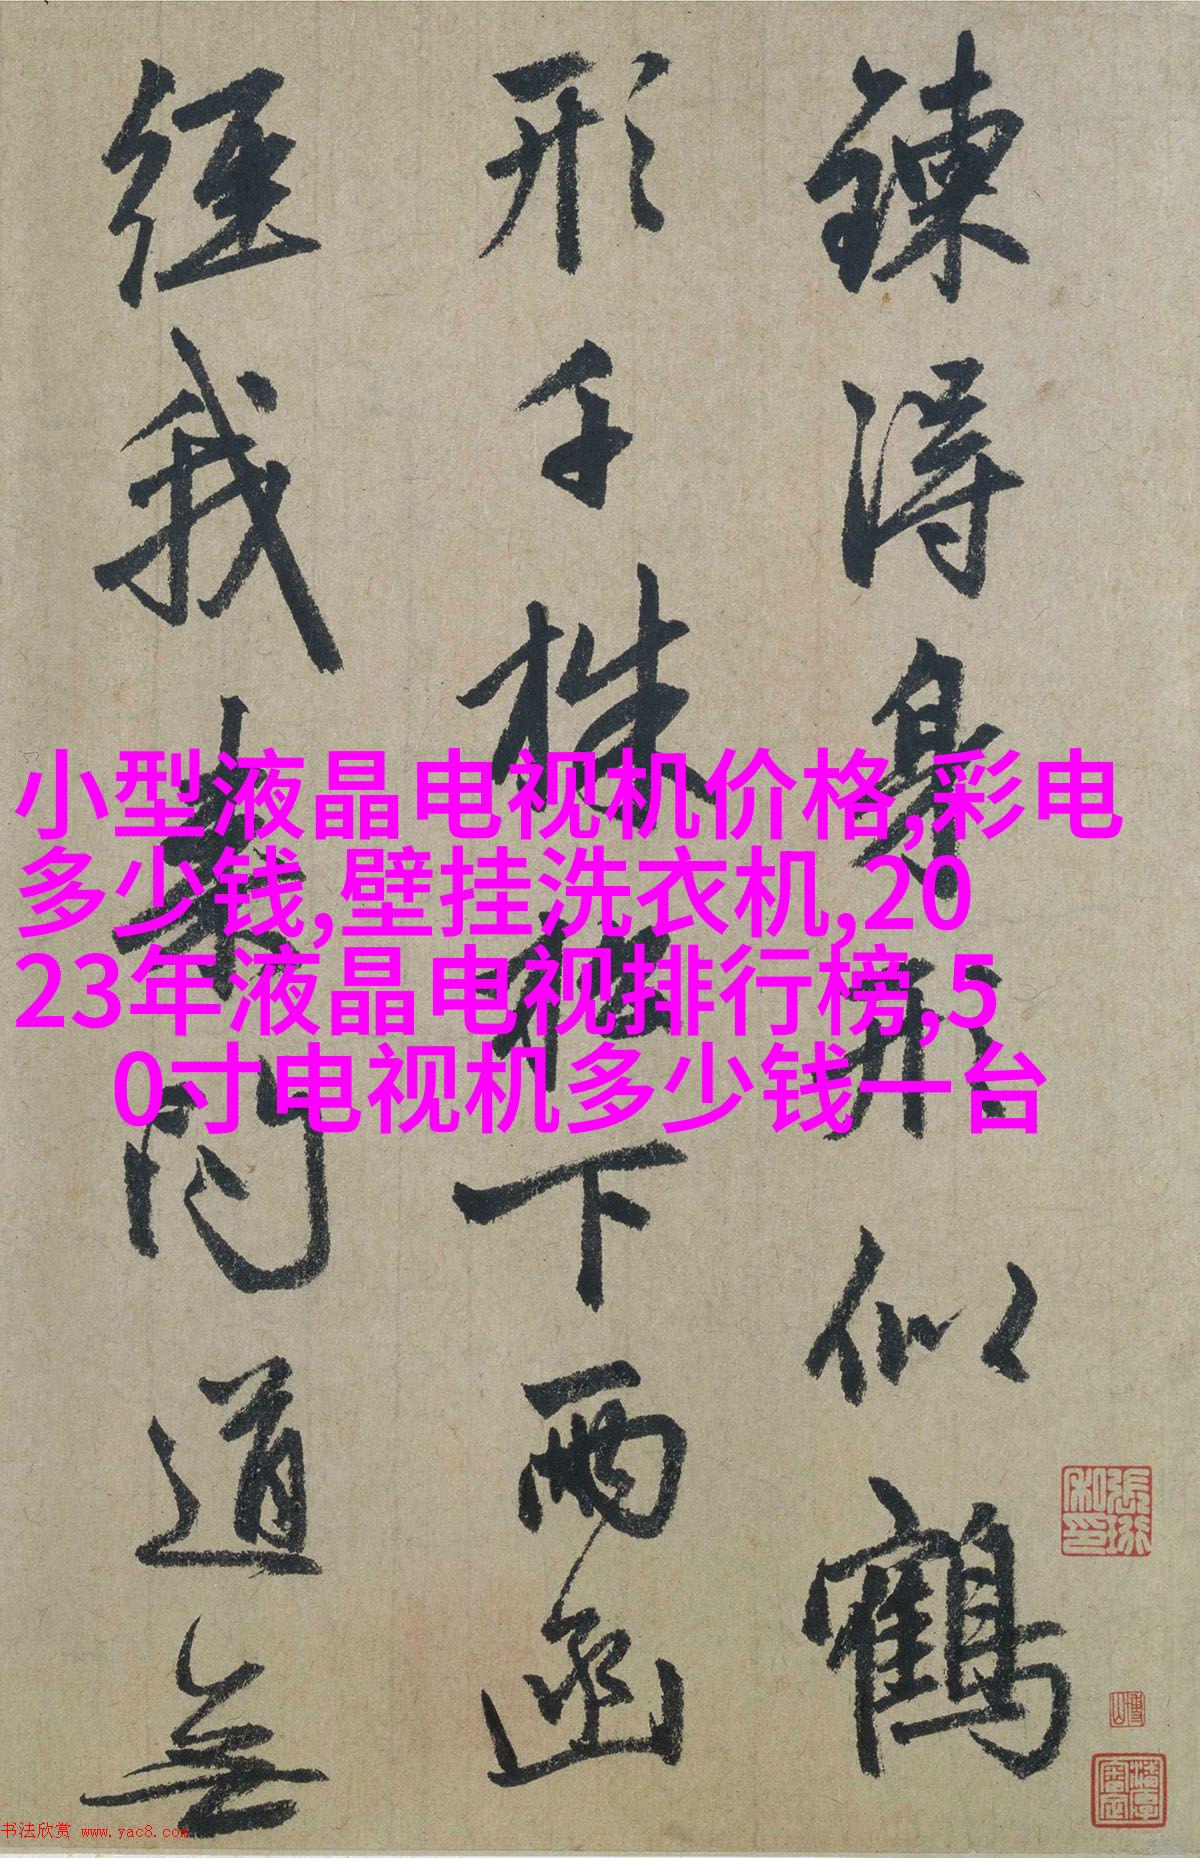 鍊得身形似鶴
形千株松下兩函
經我來問道無
小型液晶电视机价格,彩电
多少钱,壁挂洗衣机,20
23年液晶电视排行榜,5
0寸电视机多少钱一台
书法欣赏 www.yac8.com